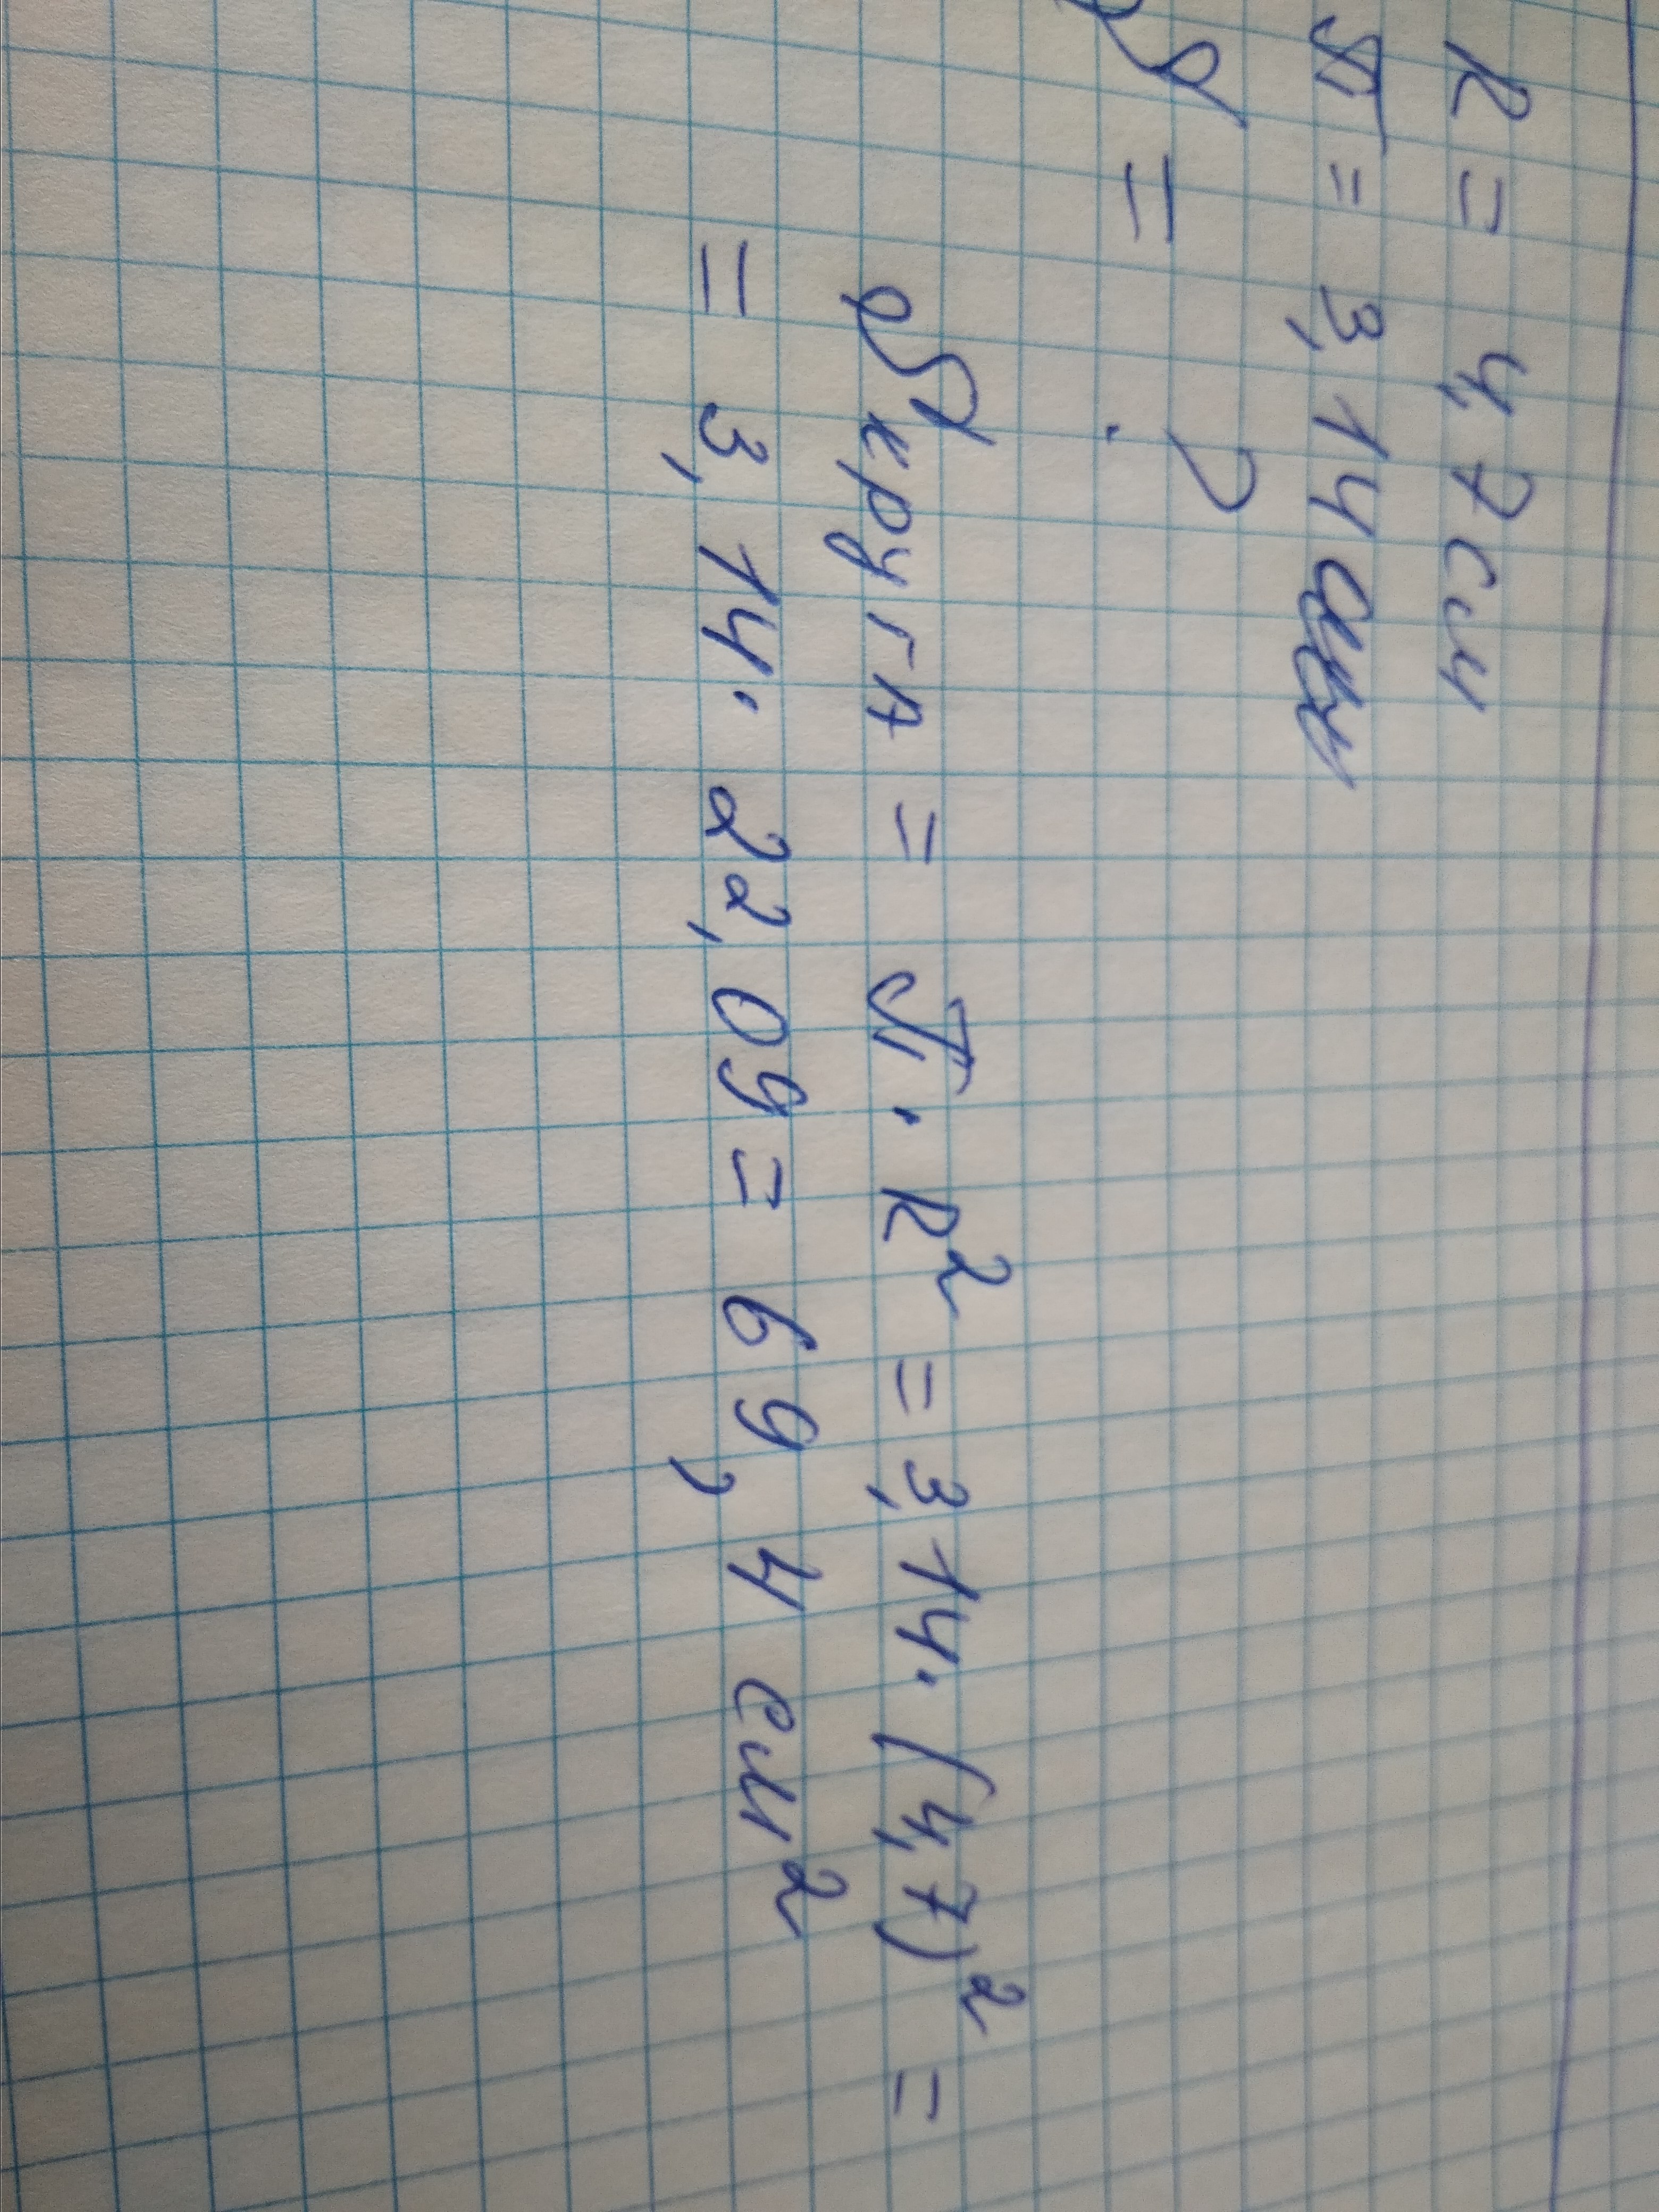 R = 4,7 см
π = 3,14
S = ?
S круга = π · R² = 3,14 · (4,7)² =
= 3,14 · 22,09 = 69,4 см²